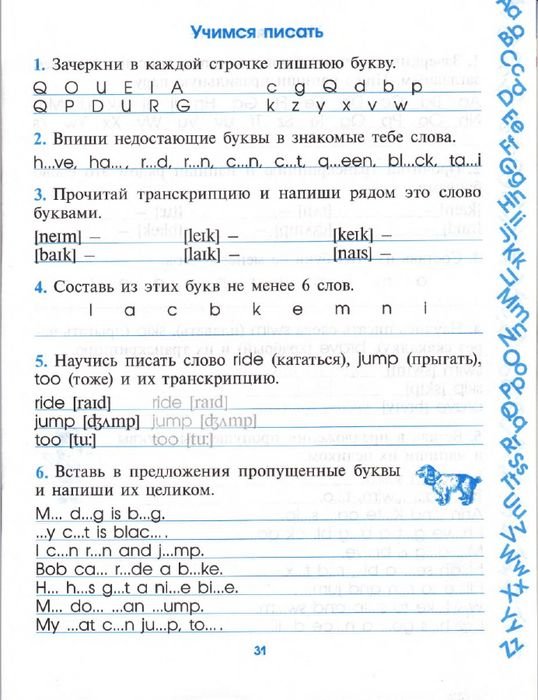 Учимся писать
1. Зачеркни в каждой строчке лишнюю букву.
Q O U E I A c g Q d b p
Q P D U R G k z y x v w
2. Впиши недостающие буквы в знакомые тебе слова.
h...ve, ha..., r...d, r...n, c...n, c...t, q...een, bl...ck, ta...i
3. Прочитай транскрипцию и напиши рядом это слово
буквами.
[neɪm] – [leɪk] – [keɪk] –
[baɪk] – [laɪk] – [naɪs] –
4. Составь из этих букв не менее 6 слов.
l a c b k e m n i
5. Научись писать слово ride (кататься), jump (прыгать),
too (тоже) и их транскрипцию.
ride [raɪd] ride [raɪd]
jump [ʤʌmp] jump [ʤʌmp]
too [tu:] too [tu:]
6. Вставь в предложения пропущенные буквы
и напиши их целиком.
M... d...g is b...g.
...y c...t is blac... .
I c...n r...n and j...mp.
Bob ca... r...de a b...ke.
H... h...s g...t a ni...e bi...e.
M... do... ...an ...ump.
My ...at c...n ju...p, to... .
31
Aa Bb Cc Dd Ee Ff Gg Hh Ii Jj Kk Ll Mm Nn Oo Pp Qq Rr Ss Tt Uu Vv Ww Xx Yy Zz